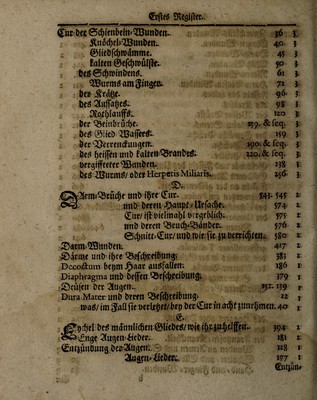 Erstes Register.
Cur der Schienbein-Wunden. 36 3
Knöchel-Wunden. 40. 3
Gliedschwämme. 45 3
kalten Geschwülste. 50 3
des Schwindens. 61 3
Wurms am Finger. 72 3
der Krätze. 96 3
des Aussatzes. 98 3
Rothlauffs. 120 3
der Beinbrüche. 159. & seq. 3
des Glied Wassers. 159 3
der Verrenckungen. 190. & seq. 3
des heissen und kalten Brandes. 220. & seq. 3
vergiffteter Wunden. 238 3
des Wurms/ oder Herpetis Miliaris. 256 3
D.
Darm-Brüche und ihre Cur. 543. 545 2
und deren Haupt-Ursache. 574 2
Cur/ ist vielmahl vergeblich. 575 2
und deren Bruch-Bänder. 576 2
Schnitt-Cur/ und wie sie zu verrichten. 580 2
Darm-Wunden. 427 2
Därme und ihre Beschreibung. 381 2
Decoctum beym Haar ausfallen. 186 1
Diaphragma und dessen Beschreibung. 279 2
Drüsen der Augen. 152. 159 1
Dura Mater und deren Beschreibung. 22 1
was/ im Fall sie verletzet/ bey der Cur in acht zunehmen. 40 1
E.
Eychel des männlichen Gliedes/ wie ihr zu helffen. 394 2
Enge Augen-Lieder. 181 2
Entzündung der Augen. 128 1
Augen-Lieder. 177 1
Entzün-